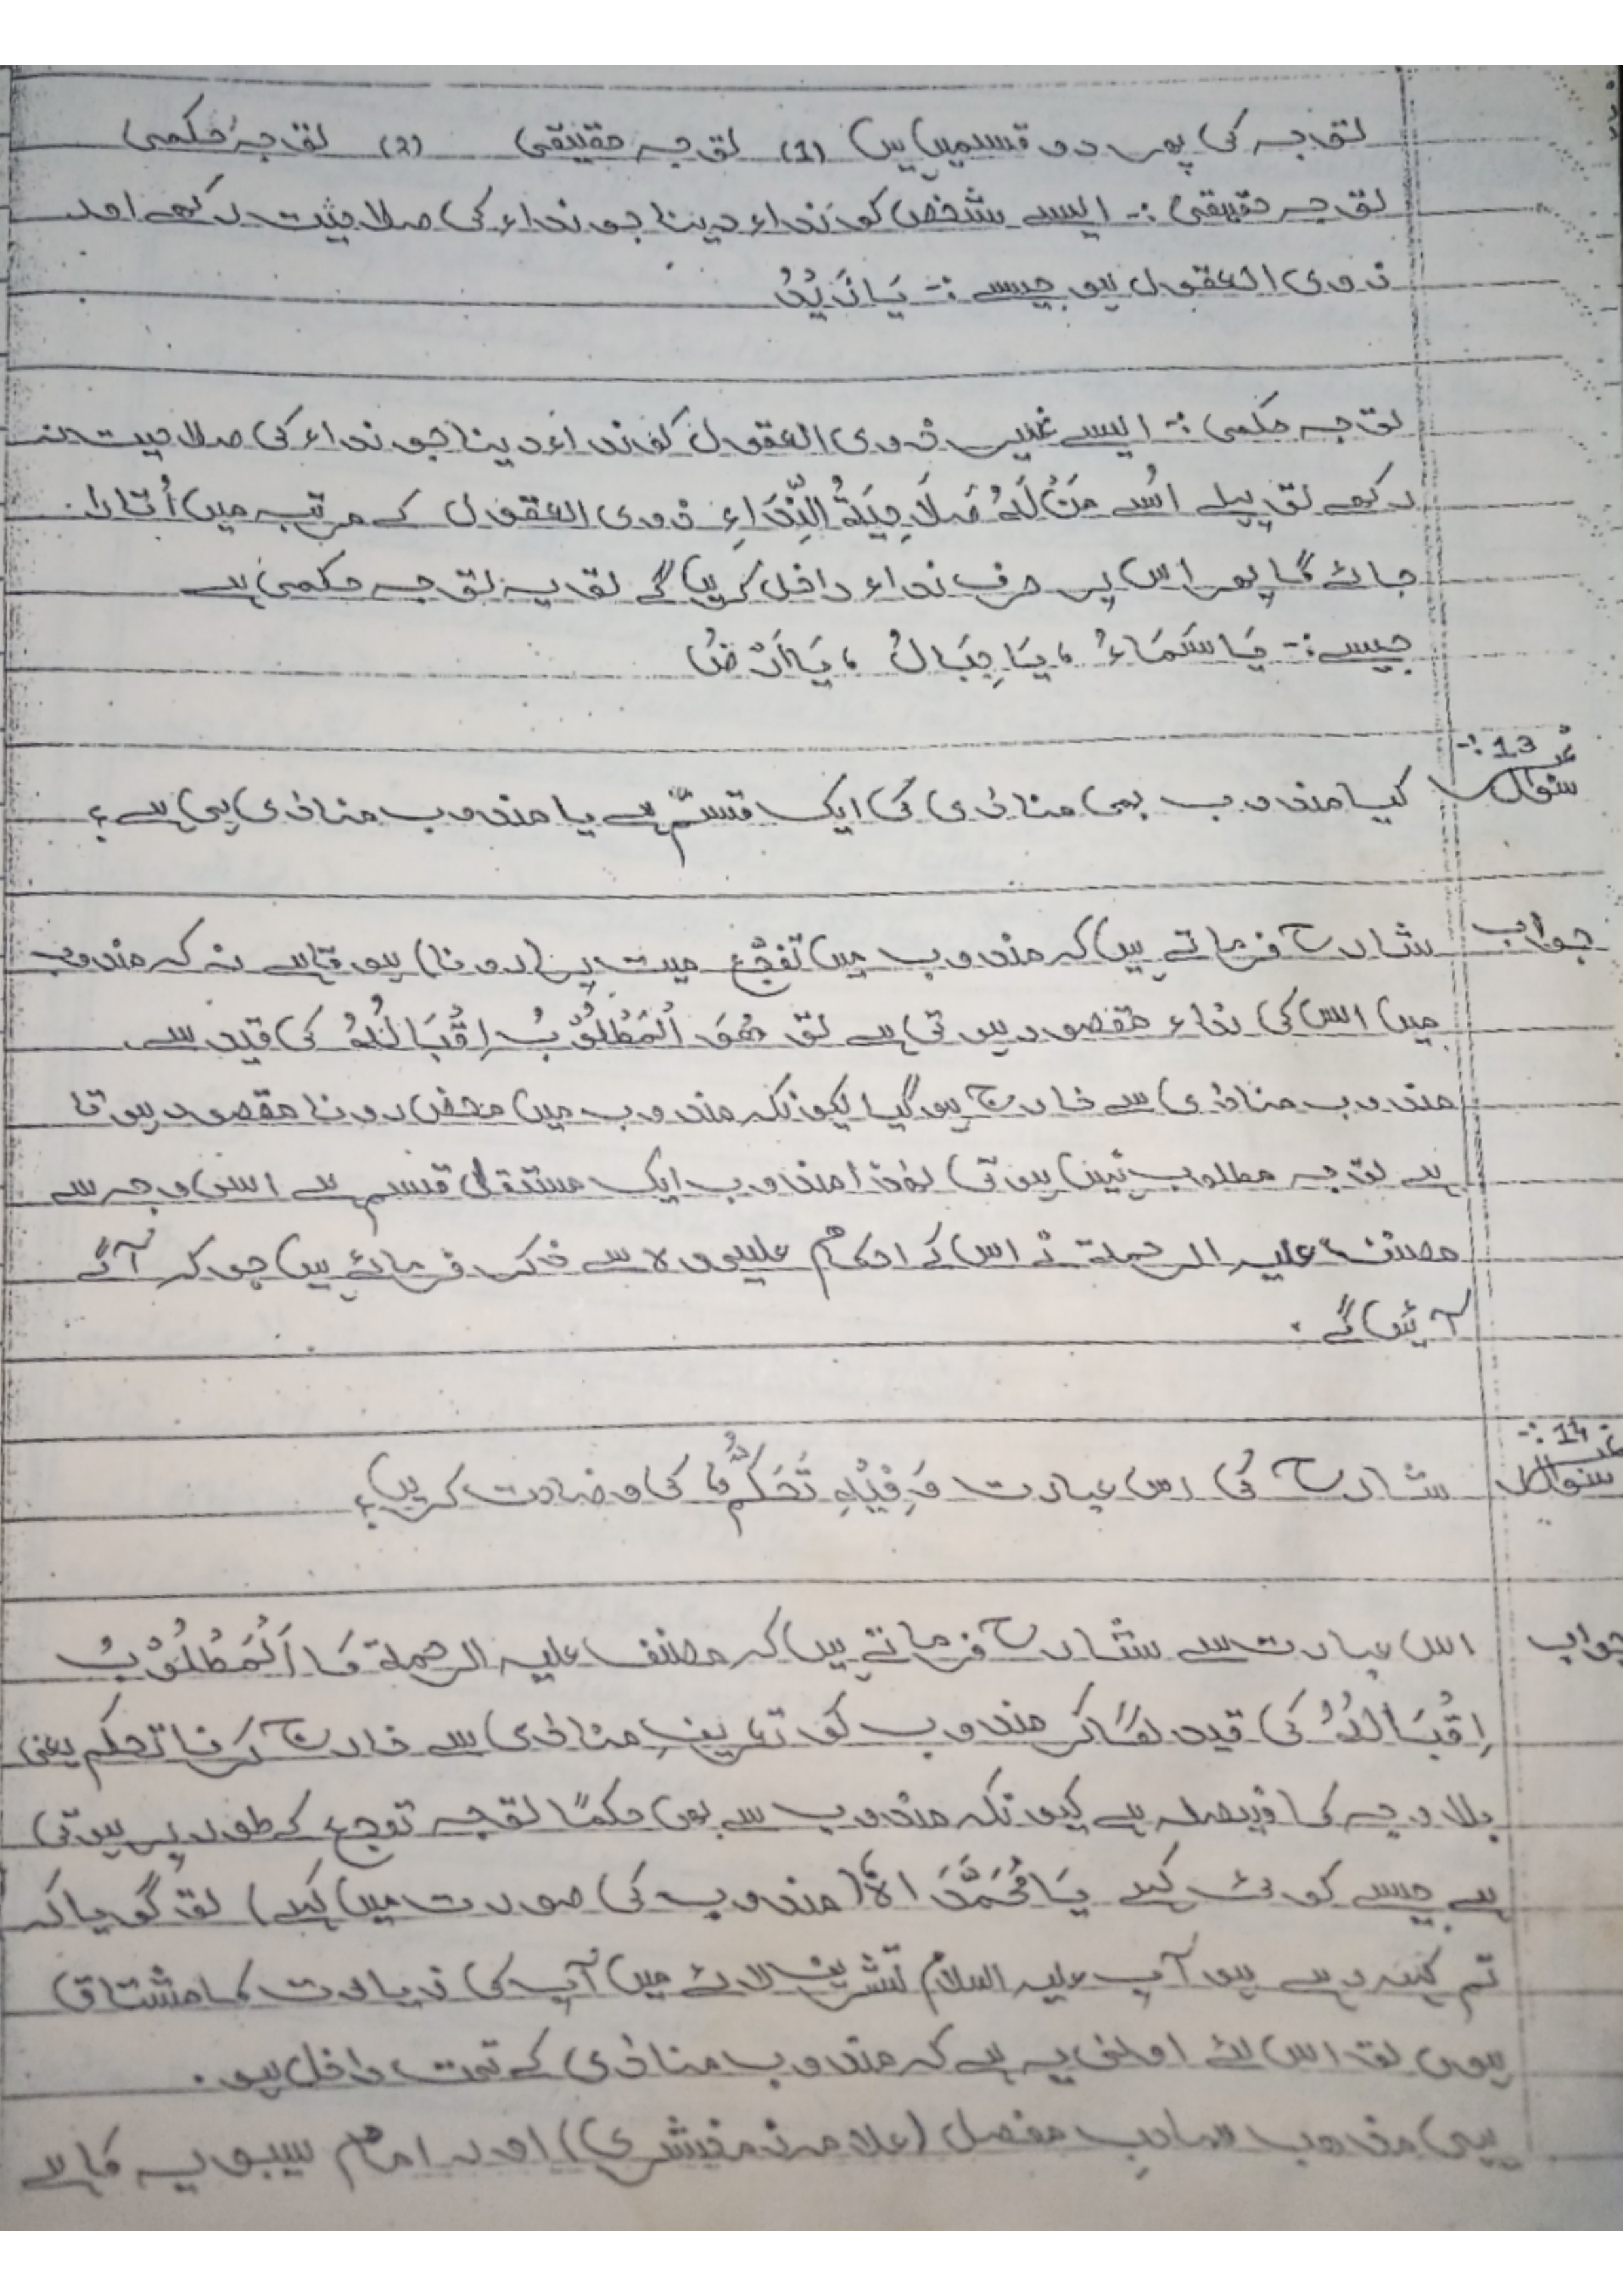 توجہ کی پھر دو قسمیں ہیں (1) توجہ حقیقی (2) توجہ حکمی
توجہ حقیقی :- ایسے شخص کو نداء دینا جو نداء کی صلاحیت رکھے اور
ذوی العقول ہو جیسے :- یَا زَیْدُ
توجہ حکمی :- ایسے غیر ذوی العقول کو نداء دینا جو نداء کی صلاحیت نہ
رکھے تو پہلے اُسے مَنْ لَهُ صَلَاحِیَةُ النِّدَاءِ ذوی العقول کے مرتبہ میں اُتارا
جائے گا پھر اس پر حرف نداء داخل کریں گے تو یہ توجہ حکمی ہے
جیسے :- یَا سَمَاءُ ، یَا جِبَالُ ، یَا اَرْضُ
سوال نمبر 13 :- کیا مندوب بھی منادٰی کی ایک قسم ہے یا مندوب منادٰی ہی ہے ؟
جواب شارح فرماتے ہیں کہ مندوب میں تَفَجُّع میت پر (رونا) ہوتا ہے نہ کہ مندوب
میں اس کی نداء مقصود ہوتی ہے تو ھُوَ الْمَطْلُوْبُ اِقْبَالُهُ کی قید سے
مندوب منادٰی سے خارج ہو گیا کیونکہ مندوب میں محض رونا مقصود ہوتا
ہے توجہ مطلوب نہیں ہوتی لہٰذا مندوب ایک مستقل قسم ہے اسی وجہ سے
مصنف علیہ الرحمۃ نے اس کے احکام علیحدہ سے ذکر فرمائے ہیں جو کہ آگے
آئیں گے .
سوال نمبر 14 :- شارح کی اس عبارت وَفِیْهِ تَحَکُّمٌ کی وضاحت کریں ؟
جواب اس عبارت سے شارح فرماتے ہیں کہ مصنف علیہ الرحمۃ کا اَلْمَطْلُوْبُ
اِقْبَالُهُ کی قید لگا کر مندوب کو تعریفِ منادٰی سے خارج کرنا تحکم یعنی
بلاوجہ کا فیصلہ ہے کیونکہ مندوب سے بھی حکمًا توجہ توجع کے طور پر ہوتی
ہے جیسے کوئی کہے یَا مُحَمَّدَاہُ (مندوب کی صورت میں کہے) تو گویا کہ
تم کہہ رہے ہو آپ علیہ السلام تشریف لائے میں آپ کی زیارت کا مشتاق
ہوں تو اس لئے اولٰی یہ ہے کہ مندوب منادٰی کے تحت داخل ہو .
یہی مذھب صاحبِ مفصل (علامہ زمخشری) اور امام سیبویہ کا ہے